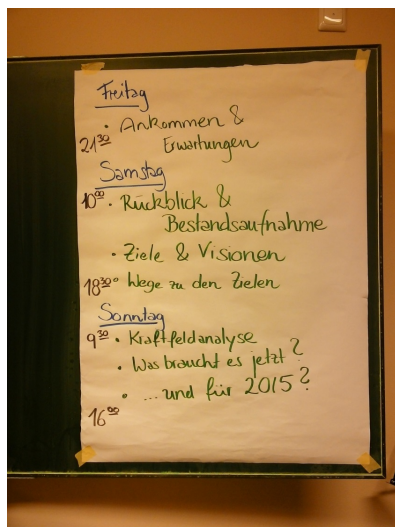 Freitag
• Ankommen &
21³⁰ Erwartungen
Samstag
10⁰⁰ • Rückblick &
Bestandsaufnahme
• Ziele & Visionen
18³⁰ • Wege zu den Zielen
Sonntag
9³⁰ • Kraftfeldanalyse
• Was braucht es jetzt?
• ...und für 2015?
16⁰⁰